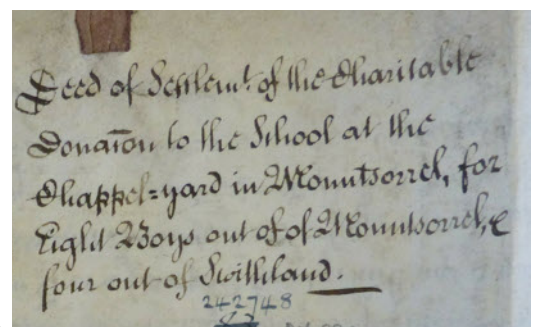 Deed of Settlemt. of the Charitable
Donac̄on to the School at the
Chappel=yard in Mountsorrel, for
Eight Boys out of of Mountsorrel, &
four out of Swithland.
242748